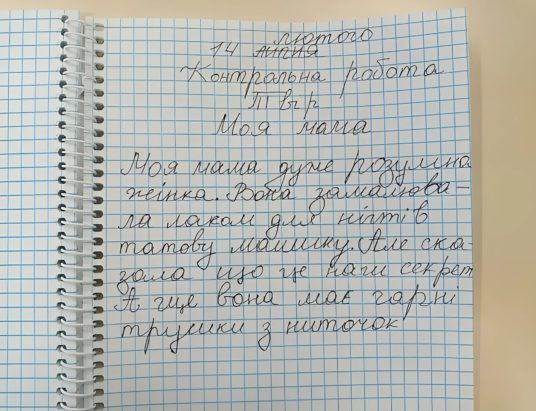 лютого
14 липня
Контрольна робота
III вар
Моя мама
Моя мама дуже розумна
жінка. Вона замалюва-
ла лаком для нігтів
татову машину. Але ска-
зала що це наш секрет
А ще вона має гарні
трушки з ниточок